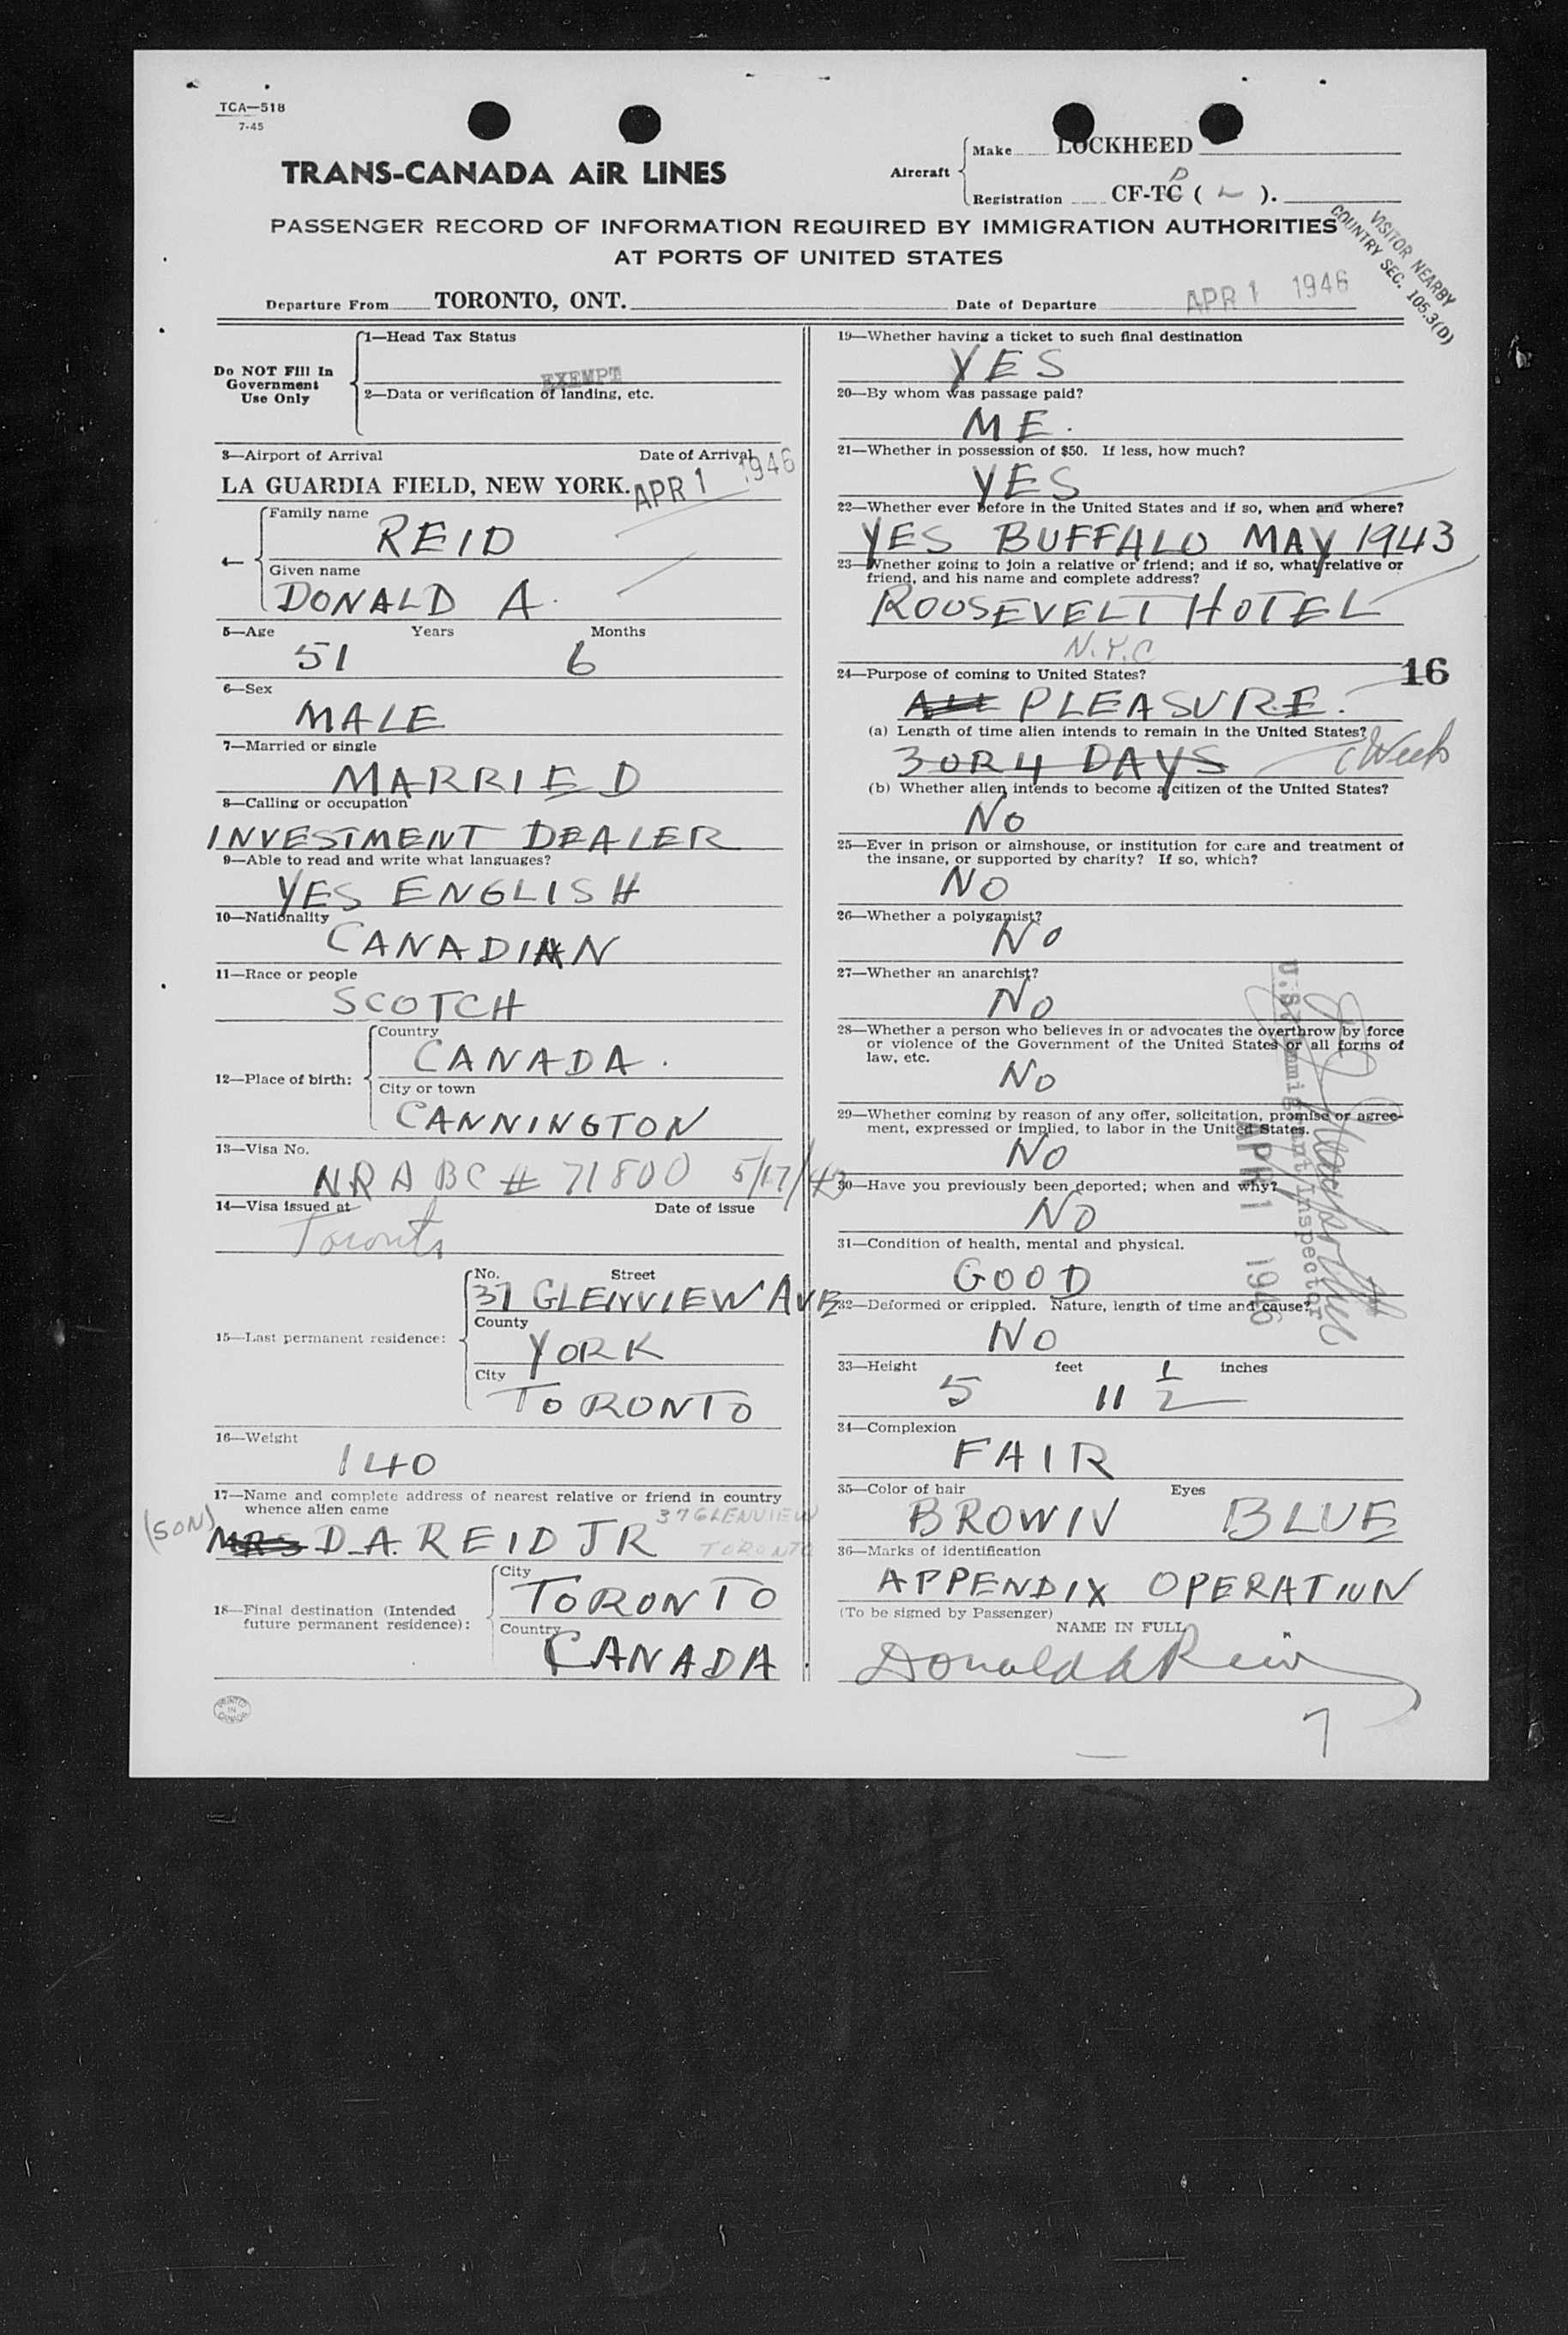 TCA—518
7-45
TRANS-CANADA AiR LINES
Aircraft
Make LOCKHEED
Registration CF-TC D ( L ).
PASSENGER RECORD OF INFORMATION REQUIRED BY IMMIGRATION AUTHORITIES
AT PORTS OF UNITED STATES
VISITOR NEARBY
COUNTRY SEC. 105.3(D)
Departure From TORONTO, ONT. Date of Departure APR 1 1946
Do NOT Fill In
Government
Use Only
1—Head Tax Status
EXEMPT
2—Data or verification of landing, etc.
3—Airport of Arrival Date of Arrival
LA GUARDIA FIELD, NEW YORK. APR 1 1946
4—
Family name
REID
Given name
DONALD A.
5—Age Years Months
51 6
6—Sex
MALE
7—Married or single
MARRIED
8—Calling or occupation
INVESTMENT DEALER
9—Able to read and write what languages?
YES ENGLISH
10—Nationality
CANADIAN
11—Race or people
SCOTCH
12—Place of birth:
Country
CANADA.
City or town
CANNINGTON
13—Visa No.
NRA BC # 71800 5/17/43
14—Visa issued at Date of issue
Toronto
15—Last permanent residence:
No. Street
37 GLENVIEW AVE
County
YORK
City
TORONTO
16—Weight
140
17—Name and complete address of nearest relative or friend in country
whence alien came
(SON) MRS D.A. REID JR 37 GLENVIEW
TORONTO
18—Final destination (Intended
future permanent residence):
City
TORONTO
Country
CANADA
PRINTED
IN
CANADA
19—Whether having a ticket to such final destination
YES
20—By whom was passage paid?
ME.
21—Whether in possession of $50. If less, how much?
YES
22—Whether ever before in the United States and if so, when and where?
YES BUFFALO MAY 1943
23—Whether going to join a relative or friend; and if so, what relative or
friend, and his name and complete address?
ROOSEVELT HOTEL
N.Y.C
16
24—Purpose of coming to United States?
PLEASURE.
(a) Length of time alien intends to remain in the United States?
3 OR 4 DAYS 1 Week
(b) Whether alien intends to become a citizen of the United States?
NO
25—Ever in prison or almshouse, or institution for care and treatment of
the insane, or supported by charity? If so, which?
NO
26—Whether a polygamist?
NO
27—Whether an anarchist?
NO
28—Whether a person who believes in or advocates the overthrow by force
or violence of the Government of the United States or all forms of
law, etc.
NO
29—Whether coming by reason of any offer, solicitation, promise or agree-
ment, expressed or implied, to labor in the United States.
NO
30—Have you previously been deported; when and why?
NO
31—Condition of health, mental and physical.
GOOD
32—Deformed or crippled. Nature, length of time and cause?
NO
U.S. Immigrant Inspector
APR 1 1946
33—Height feet inches
5 11 1/2
34—Complexion
FAIR
35—Color of hair Eyes
BROWN BLUE
36—Marks of identification
APPENDIX OPERATION
(To be signed by Passenger)
NAME IN FULL
Donald A Reid
7